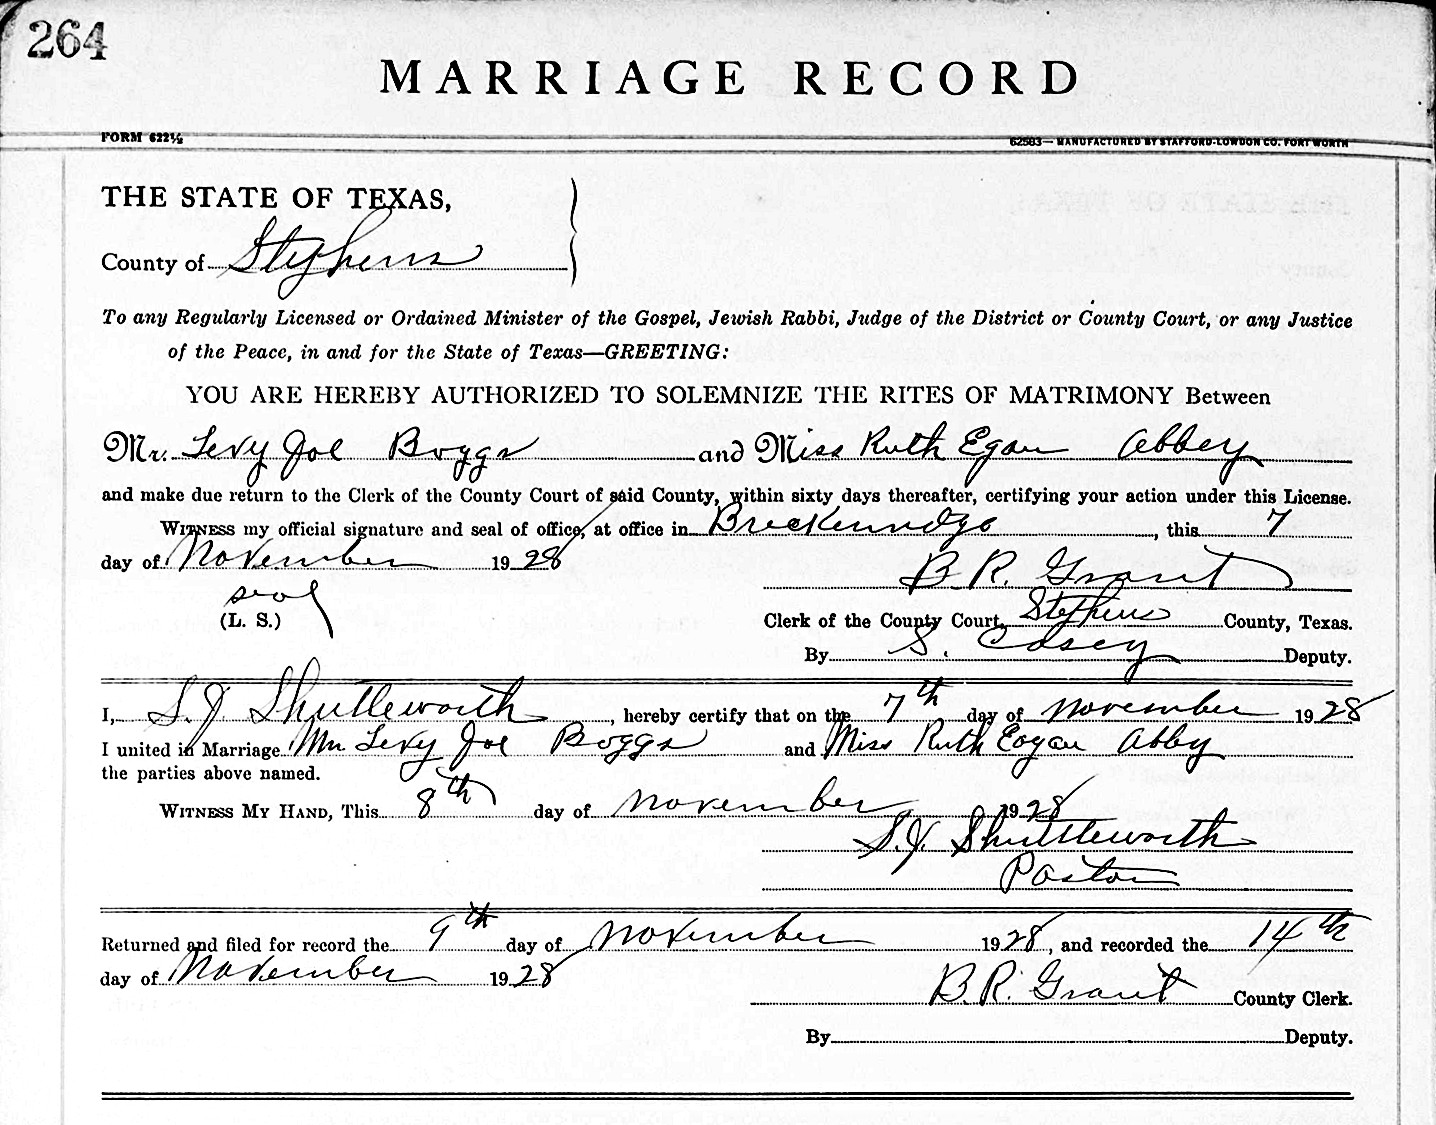 264
MARRIAGE RECORD
FORM 622½ 62583— MANUFACTURED BY STAFFORD-LOWDON CO. FORT WORTH
THE STATE OF TEXAS,
County of Stephens
To any Regularly Licensed or Ordained Minister of the Gospel, Jewish Rabbi, Judge of the District or County Court, or any Justice
of the Peace, in and for the State of Texas—GREETING:
YOU ARE HEREBY AUTHORIZED TO SOLEMNIZE THE RITES OF MATRIMONY Between
Mr. Levy Joe Boggs and Miss Ruth Egan Abbey
and make due return to the Clerk of the County Court of said County, within sixty days thereafter, certifying your action under this License.
WITNESS my official signature and seal of office, at office in Breckenridge, this 7
day of November 1928
B. R. Grant
seal
(L. S.)
Clerk of the County Court, Stephens County, Texas.
By S. Casey Deputy.
I, S. J. Shuttleworth, hereby certify that on the 7th day of November 1928
I united in Marriage Mr. Levy Joe Boggs and Miss Ruth Eogan Abby
the parties above named.
WITNESS MY HAND, This 8th day of November 1928
S. J. Shuttleworth
Pastor
Returned and filed for record the 9th day of November 1928, and recorded the 14th
day of November 1928
B. R. Grant County Clerk.
By Deputy.